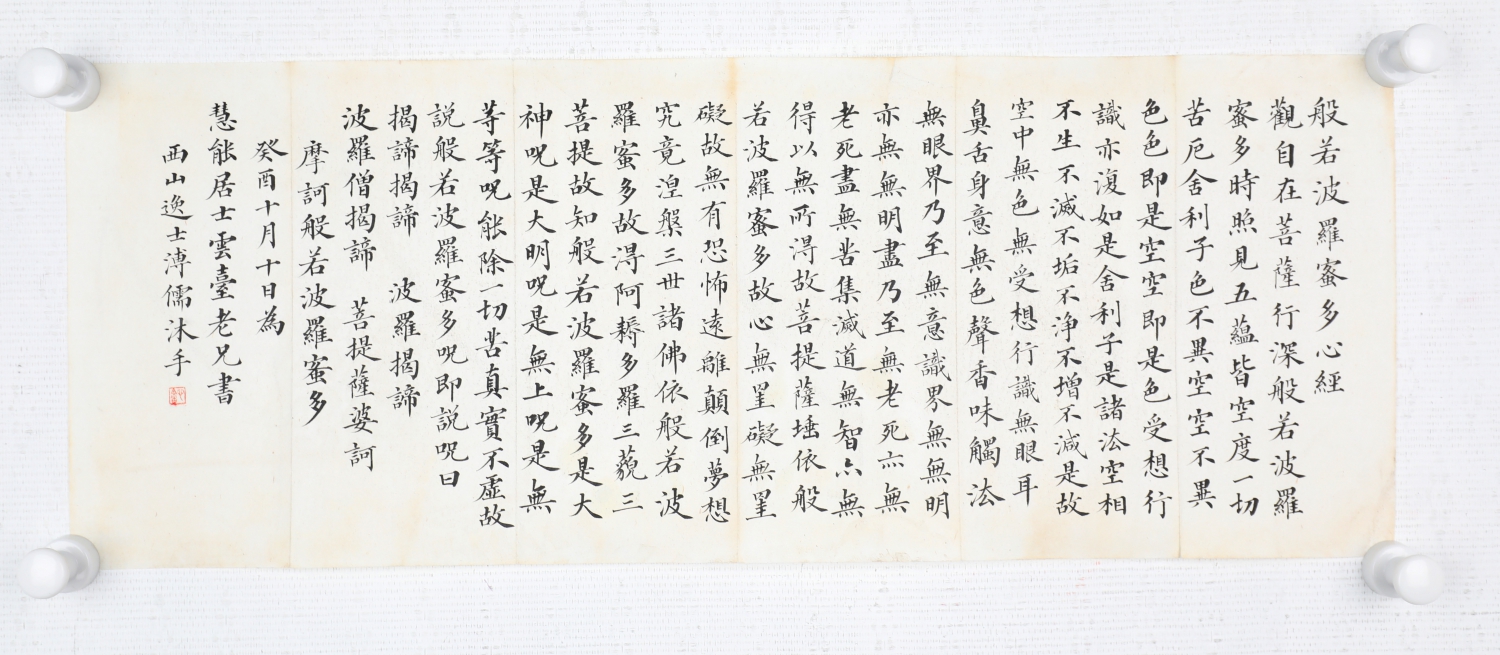 般若波羅蜜多心經
觀自在菩薩行深般若波羅
蜜多時照見五蘊皆空度一切
苦厄舍利子色不異空空不異
色色即是空空即是色受想行
識亦復如是舍利子是諸法空相
不生不滅不垢不淨不增不減是故
空中無色無受想行識無眼耳
鼻舌身意無色聲香味觸法
無眼界乃至無意識界無無明
亦無無明盡乃至無老死亦無
老死盡無苦集滅道無智亦無
得以無所得故菩提薩埵依般
若波羅蜜多故心無罣礙無罣
礙故無有恐怖遠離顛倒夢想
究竟涅槃三世諸佛依般若波
羅蜜多故得阿耨多羅三藐三
菩提故知般若波羅蜜多是大
神呪是大明呪是無上呪是無
等等呪能除一切苦真實不虛故
說般若波羅蜜多呪即説呪曰
揭諦揭諦 波羅揭諦
波羅僧揭諦 菩提薩婆訶
摩訶般若波羅蜜多
癸酉十月十日為
慧能居士雲臺老兄書
西山逸士溥儒沐手